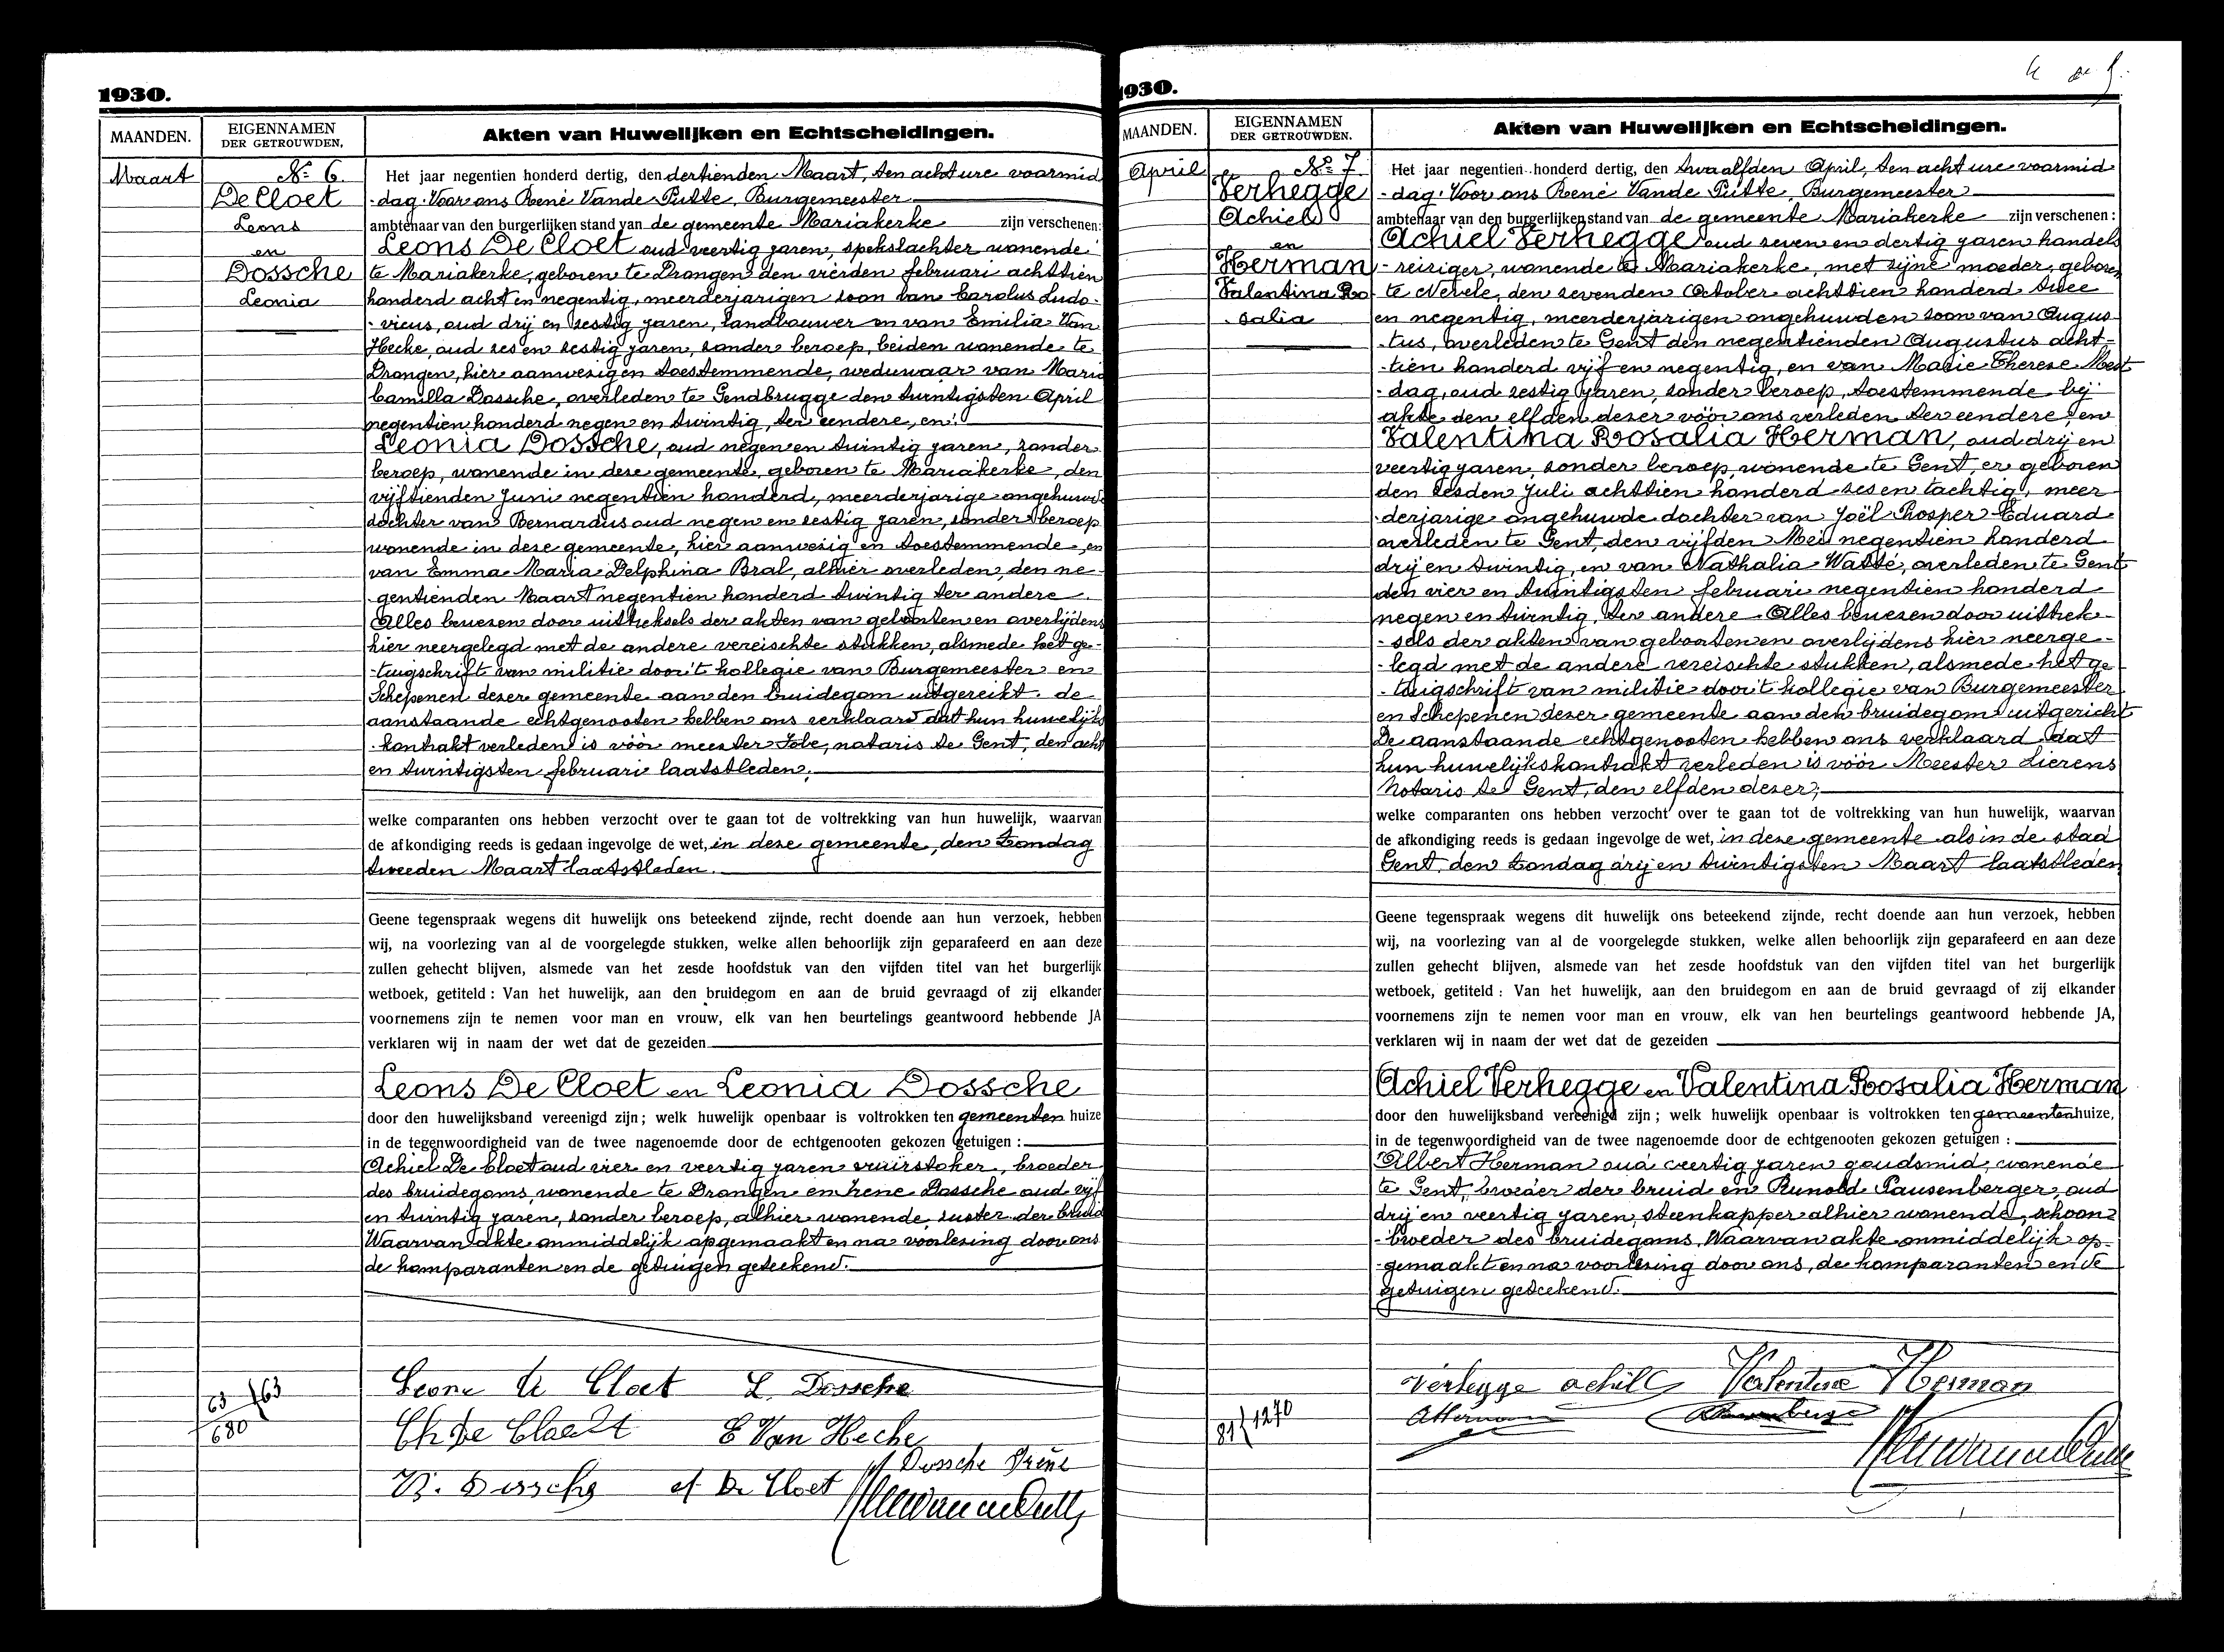 1930.
MAANDEN.
EIGENNAMEN
DER GETROUWDEN.
Akten van Huwelijken en Echtscheidingen.
Maart
No 6.
De Cloet
Leons
en
Dossche
Leonia
Het jaar negentien honderd dertig, den dertienden Maart, ten acht ure voormid
-dag. Voor ons René Vande Putte, Burgemeester
ambtenaar van den burgerlijken stand van de gemeente Mariakerke zijn verschenen:
Leons De Cloet oud veertig jaren, spekslachter wonende
te Mariakerke, geboren te Drongen den vierden februari achttien
honderd acht en negentig, meerderjarigen zoon van Carolus Ludo-
-vicus, oud drij en zestig jaren, landbouwer en van Emilia Van
Hecke, oud zes en zestig jaren, zonder beroep, beiden wonende te
Drongen, hier aanwezig en toestemmende, weduwaar van Maria
Camilla Dossche, overleden te Gendbrugge den twintigsten April
negentien honderd negen en twintig, ter eendere, en:
Leonia Dossche, oud negen en twintig jaren, zonder
beroep, wonende in deze gemeente, geboren te Mariakerke, den
vijftienden Juni negentien honderd, meerderjarige ongehuwde
dochter van Bernardus oud negen en zestig jaren, zonder beroep
wonende in deze gemeente, hier aanwezig en toestemmende en
van Emma Maria Delphina Bral, alhier overleden, den ne-
gentienden Maart negentien honderd twintig ter andere.
Alles bewezen door uittreksels der akten van geboorten en overlijdens
hier neergelegd met de andere vereischte stukken, alsmede het ge-
-tuigschrift van militie door 't kollegie van Burgemeester en
Schepenen dezer gemeente aan den bruidegom uitgereikt. de
aanstaande echtgenooten hebben ons verklaard dat hun huwelijks
-kontrakt verleden is vóór meester Tobe, notaris te Gent, den acht
en twintigsten februari laatstleden;
welke comparanten ons hebben verzocht over te gaan tot de voltrekking van hun huwelijk, waarvan
de afkondiging reeds is gedaan ingevolge de wet, in deze gemeente, den Zondag
tweeden Maart laatstleden.
Geene tegenspraak wegens dit huwelijk ons beteekend zijnde, recht doende aan hun verzoek, hebben
wij, na voorlezing van al de voorgelegde stukken, welke allen behoorlijk zijn geparafeerd en aan deze
zullen gehecht blijven, alsmede van het zesde hoofdstuk van den vijfden titel van het burgerlijk
wetboek, getiteld : Van het huwelijk, aan den bruidegom en aan de bruid gevraagd of zij elkander
voornemens zijn te nemen voor man en vrouw, elk van hen beurtelings geantwoord hebbende JA
verklaren wij in naam der wet dat de gezeiden
Leons De Cloet en Leonia Dossche
door den huwelijksband vereenigd zijn; welk huwelijk openbaar is voltrokken ten gemeenten huize
in de tegenwoordigheid van de twee nagenoemde door de echtgenooten gekozen getuigen :
Achiel De Cloet oud vier en veertig jaren vuurstoker, broeder
des bruidegoms, wonende te Drongen en Irene Dossche oud vijf
en twintig jaren, zonder beroep, alhier wonende, zuster der bruid
Waarvan akte onmiddelijk opgemaakt en na voorlezing door ons
de komparanten en de getuigen geteekend.
63 / 63
680
Leons de Cloet L. Dossche
Ch De Cloedt E Van Hecke
Dossche Irène
B. Dossche A De Cloet
1930.
MAANDEN.
EIGENNAMEN
DER GETROUWDEN.
Akten van Huwelijken en Echtscheidingen.
April
No 7.
Verhegge
Achiel
en
Herman
Valentina Ro
-salia
Het jaar negentien honderd dertig, den twaalfden April, ten acht ure voormid
-dag. Voor ons René Vande Putte, Burgemeester
ambtenaar van den burgerlijken stand van de gemeente Mariakerke zijn verschenen:
Achiel Verhegge oud zeven en dertig jaren handels
-reiziger, wonende te Mariakerke, met zijne moeder, geboren
te Nevele, den zevenden October achttien honderd twee
en negentig, meerderjarigen ongehuwden zoon van Augus
-tus, overleden te Gent den negentienden Augustus acht-
-tien honderd vijf en negentig, en van Marie Therese Mest
-dag, oud zestig jaren, zonder beroep, toestemmende bij
akte den elfden dezer vóór ons verleden ter eendere, en
Valentina Rosalia Herman, oud drij en
veertig jaren, zonder beroep, wonende te Gent, er geboren
den zesden juli achttien honderd zes en tachtig, meer
-derjarige ongehuwde dochter van Joël Prosper Eduard
overleden te Gent, den vijfden Mei negentien honderd
drij en twintig, en van Nathalia Watté, overleden te Gent
den vier en twintigsten februari negentien honderd
negen en twintig, ter andere. Alles bewezen door uittrek-
-sels der akten van geboorten en overlijdens hier neerge-
-legd met de andere vereischte stukken, alsmede het ge
-tuigschrift van militie door 't kollegie van Burgemeester
en Schepenen dezer gemeente aan den bruidegom uitgericht
De aanstaande echtgenooten hebben ons verklaard dat
hun huwelijkskontrakt verleden is vóór Meester Lierens
Notaris te Gent, den elfden dezer;
welke comparanten ons hebben verzocht over te gaan tot de voltrekking van hun huwelijk, waarvan
de afkondiging reeds is gedaan ingevolge de wet, in deze gemeente als in de stad
Gent, den Zondag drij en twintigsten Maart laatstleden
Geene tegenspraak wegens dit huwelijk ons beteekend zijnde, recht doende aan hun verzoek, hebben
wij, na voorlezing van al de voorgelegde stukken, welke allen behoorlijk zijn geparafeerd en aan deze
zullen gehecht blijven, alsmede van het zesde hoofdstuk van den vijfden titel van het burgerlijk
wetboek, getiteld : Van het huwelijk, aan den bruidegom en aan de bruid gevraagd of zij elkander
voornemens zijn te nemen voor man en vrouw, elk van hen beurtelings geantwoord hebbende JA,
verklaren wij in naam der wet dat de gezeiden
Achiel Verhegge en Valentina Rosalia Herman
door den huwelijksband vereenigd zijn; welk huwelijk openbaar is voltrokken ten gemeentenhuize,
in de tegenwoordigheid van de twee nagenoemde door de echtgenooten gekozen getuigen :
Albert Herman oud veertig jaren goudsmid, wonende
te Gent, broeder der bruid en Runold Pausenberger, oud
drij en veertig jaren, steenkapper alhier wonende, schoon-
-broeder des bruidegoms. Waarvan akte onmiddelijk op-
-gemaakt en na voorlezing door ons, de komparanten en de
getuigen geteekend.
81 / 1270
Verhegge achill Valentine Herman
AHerman